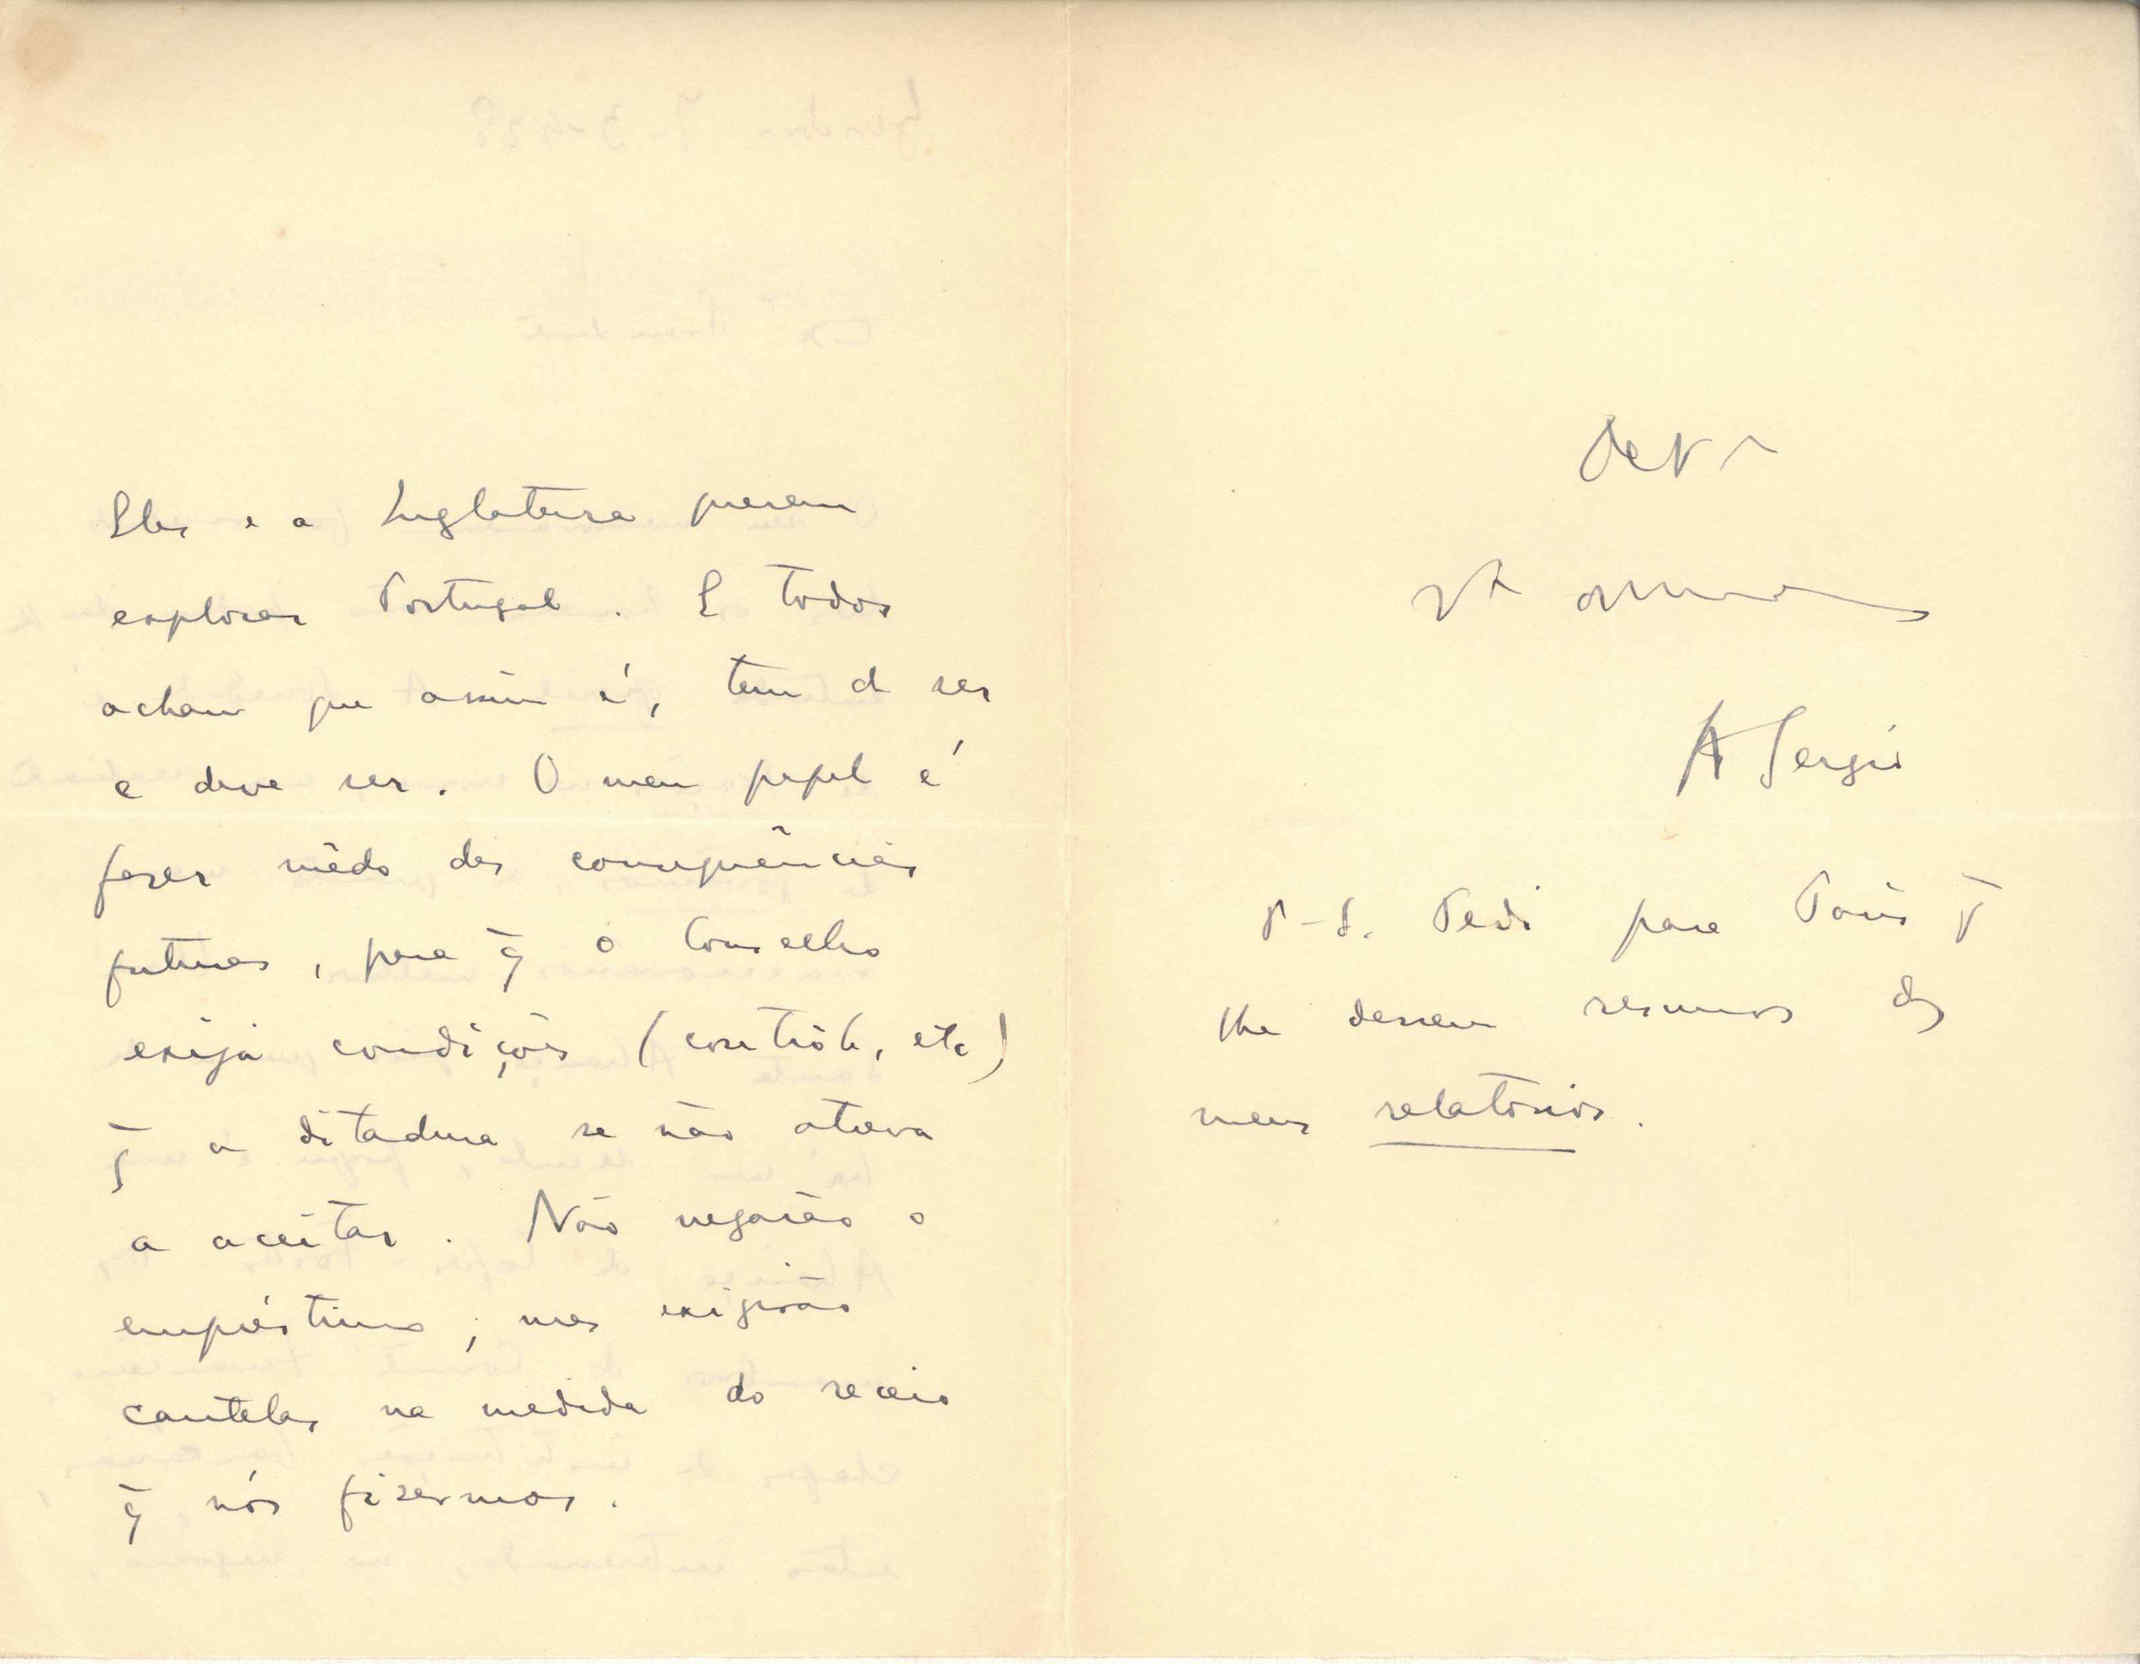 Eles e a Inglaterra querem
explorar Portugal. E todos
acham que assim é, tem de ser
e deve ser. O meu papel é
fazer mêdo das consequências
futuras, para q̄ o Conselho
exija condições (contrôle, etc)
q̄ a ditadura se não atreva
a aceitar. Não negarão o
empréstimo; mas exigirão
cautelas na medida do receio
q̄ nós fizermos.
A Sergio
P.-S. Pedi para Paris q̄
lhe dessem resumos dos
meus relatorios.